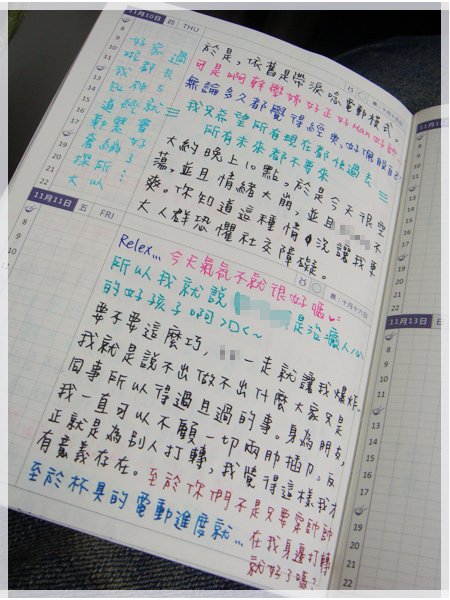 11月10日 四 THU
於是,依舊是帶淚嗑電動模式。
可是啊幹學姊好正好Man好帥
無論多久都覺得經典,好佩服自己
我又希望所有現在都快過去
所有未來都不要來
大約晚上10點。於是今天很空
蕩,並且情緒大崩,並且 不
爽。你知道這種情情況讓我更
大人群恐懼社交障礙。
好家過
都去
我都5
道經就
繫會
套納
探所
大以
11月11日 五 FRI
Relex... 今天氣氛不就很好嗎
農:十月十六日
所以我就說 是治癒人心
的好孩子啊>D<~
要不要這麼巧, 一走就讓我爆炸。
我就是說不出做不出什麼大家只是
同事所以得過且過的事。身為朋友,
我一直可以不顧一切兩肋插刀。反
正就是為別人打轉,我覺得這樣我才
有意義存在。至於你們不是只要穿帥帥
在我身邊打轉
就好了嗎?
至於杯具的電動進度就...
11月13日 日
8
9
10
11
12
13
14
15
16
17
18
19
20
21
22